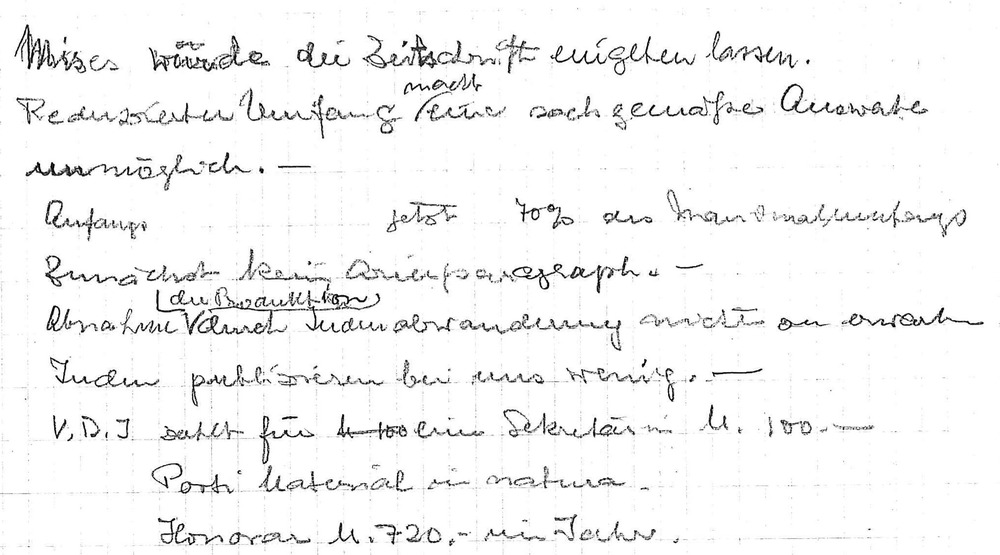 Mises würde die Zeitschrift eingehen lassen.
Reduzierter Umfang macht eine sachgemäße Auswahl
unmöglich. —
Anfangs jetzt 70% des Manuskriptumfangs
Zunächst kein Arierparagraph. —
der Produktion
Abnahme durch Judenabwanderung nicht zu erwarten
Juden publizieren bei uns wenig. —
V.D.I zahlt für eine Sekretärin M. 100.—
Porti Material in natura.
Honorar M. 720,- im Jahr.